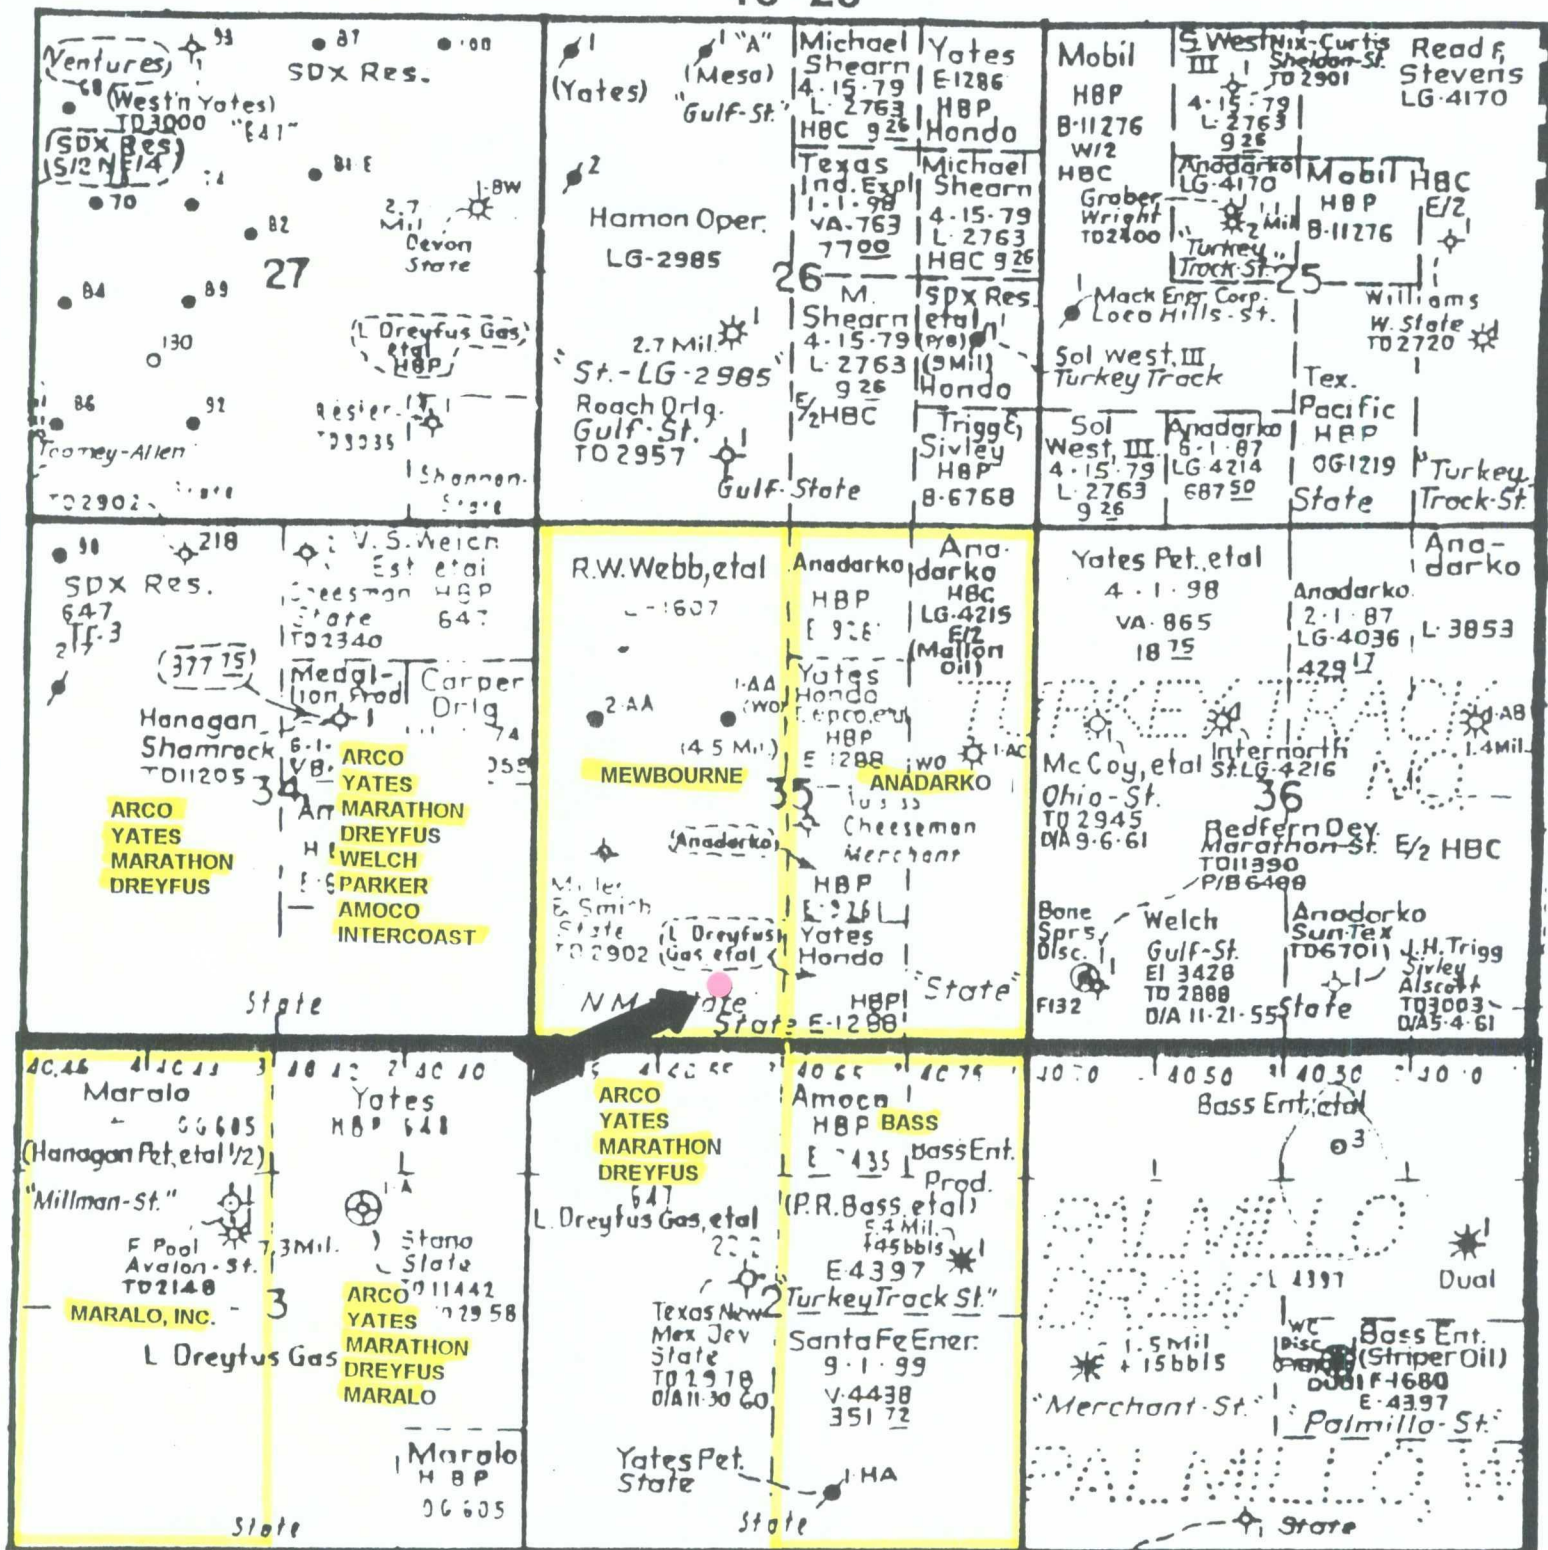 93
87
100
(Ventures)
SDX Res.
68
(West'n Yates)
TD3000 "647"
(SDX Res)
S/2 NE/4
81-E
1-BW
70
74
82
2.7
Mil
Devon
State
27
84
89
130
(L Dreyfus Gas,
etal
HBP)
86
92
Resler
TD3035
Toomey-Allen
State
TD2902
Shannon-
State
1
1 "A"
(Yates)
(Mesa)
"Gulf-St."
2
Hamon Oper.
LG-2985
26
2.7 Mil.
1
"St.-LG-2985"
Roach Drlg.
Gulf-St.
TD2957
Gulf-State
Michael
Shearn
4-15-79
L-2763
HBC 9 26
Yates
E-1286
HBP
Hondo
Texas
Ind. Expl
1-1-98
VA-763
77 00
Michael
Shearn
4-15-79
L-2763
HBC 9 26
M.
Shearn
4-15-79
L-2763
9 26
E/2 HBC
SDX Res.
etal
(P/B)
(9Mil)
Hondo
Trigg &
Sivley
HBP
B-6768
Mobil
HBP
B-11276
W/2
HBC
S. West
III
4-15-79
L-2763
9 26
Nix-Curtis
Sheldon-St.
TD2901
Read &
Stevens
LG-4170
Anadarko
LG-4170
Mobil
HBP
B-11276
HBC
E/2
Graber
Wright
TD2400
Mil
"Turkey
Track-St."
25
Mack Ener. Corp.
Loco Hills-St.
Williams
W. State
TD2720
Sol West, III
Turkey Track
Tex.
Pacific
HBP
OG1219
State
Sol
West, III
4-15-79
L-2763
9 26
Anadarko
6-1-87
LG-4214
687 50
"Turkey
Track-St."
98
218
V.S. Welch
Est etal
SDX Res.
647
Tr.3
Cheesman
State
TD2340
HBP
647
(377 75)
Medal-
lion Prod
Carper
Drlg
Hanagan
Shamrock
TD11205
34
ARCO
YATES
MARATHON
DREYFUS
ARCO
YATES
MARATHON
DREYFUS
WELCH
PARKER
AMOCO
INTERCOAST
State
R.W. Webb, etal
2-AA
1-AA
(WO)
(4.5 Mil.)
MEWBOURNE
35
(Anadarko)
Miller
& Smith
State
TD2902
(L Dreyfus
Gas, etal)
State
Anadarko
HBP
E 926
Ana-
darko
HBC
LG-4215
E/2
(Mallon
Oil)
Yates
Hondo
HBP
E 1288
WO
1-AC
ANADARKO
Cheeseman
Merchant
HBP
E-926
Yates
Hondo
"State"
HBP
E-1288
Yates Pet., etal
4-1-98
VA-865
18 75
Anadarko
2-1-87
LG-4036
429 17
Ana-
darko
L-3853
TURKEY TRACK
NO.
1-AB
1.4Mil.
McCoy, etal
Ohio-St.
TD2945
D/A 9-6-61
Internorth
St.LG-4216
36
Redfern Dev.
Marathon-St.
TD11390
P/B6400
E/2 HBC
Bone
Sprs.
Disc.
F132
Welch
Gulf-St.
E1 3428
TD 2888
D/A 11-21-55
Anadarko
Sun-Tex
TD6701
State
J.H. Trigg
Sivley
Alscott
TD3003
D/A5-4-61
40.46
4
3
2
40 10
Maralo
OG 605
(Hanagan Pet, etal 1/2)
"Millman-St."
F Pool
Avalon-St.
TD2148
7.3Mil.
MARALO, INC.
3
Yates
HBP 648
1-A
Stano
State
TD11442
ARCO
YATES
MARATHON
DREYFUS
MARALO
L Dreyfus Gas
Maralo
HBP
OG 605
State
ARCO
YATES
MARATHON
DREYFUS
647
L. Dreyfus Gas, etal
Texas New
Mex Dev
State
TD 2978
D/A 11-30-60
2
Yates Pet.
State
1-HA
State
40 65
40 76
Amoco
HBP
BASS
Bass Ent.
Prod.
(P.R. Bass, etal)
5.4 Mil.
+45bbls
E-4397
"Turkey Track St."
Santa Fe Ener.
9-1-99
V-4438
351 72
40 70
40 50
40 30
Bass Ent, etal
3
PALMILLO
DRAW
4397
1
Dual
1.5 Mil
+ 15bbls
"Merchant-St."
WC
Disc
Bass Ent.
(Striper Oil)
Dual F-1680
E-4397
"Palmillo-St."
PALMILLO, W
State